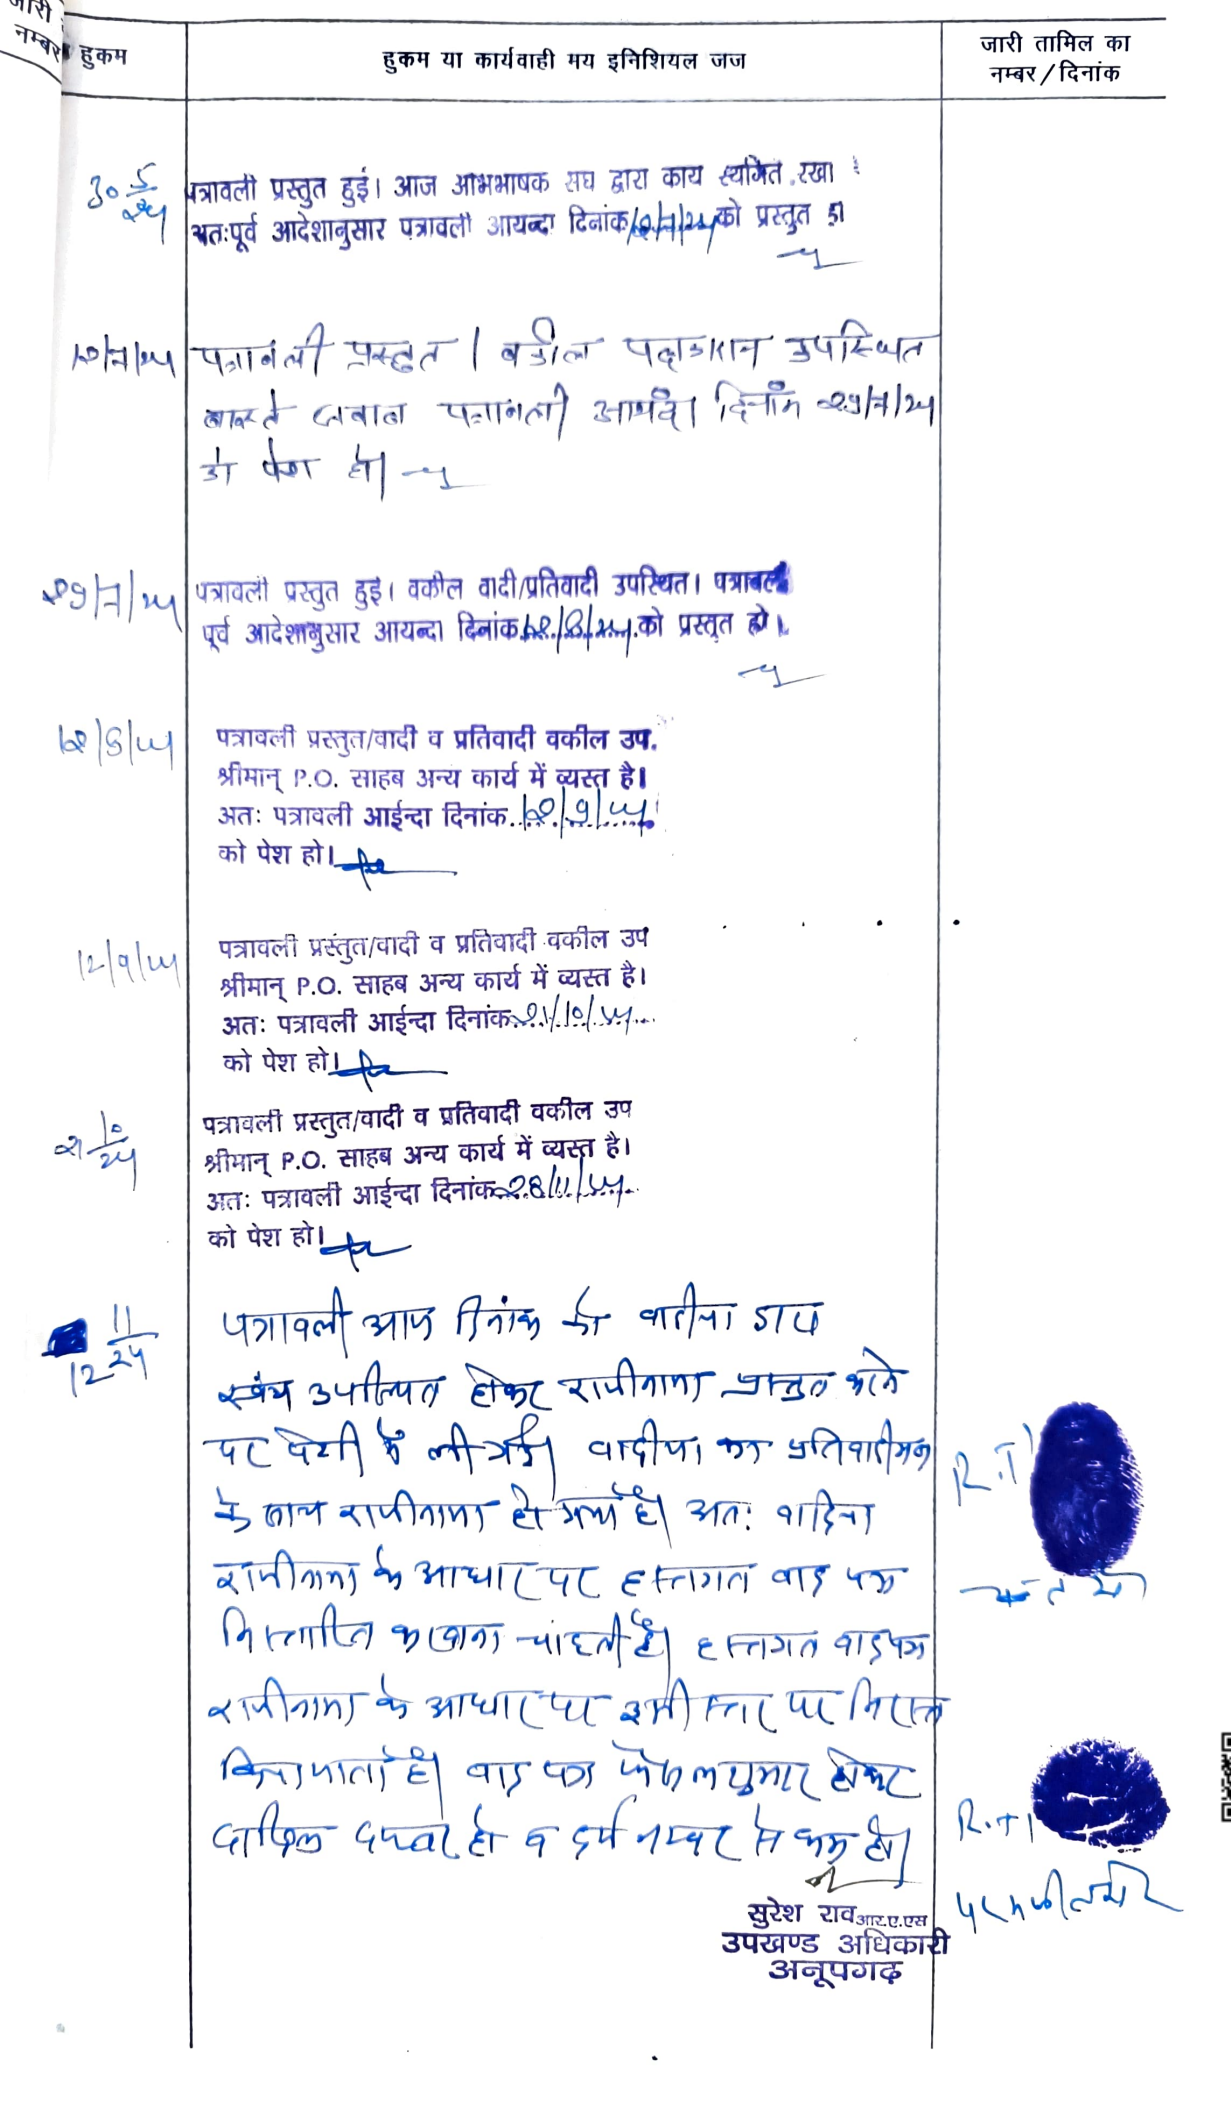 जारी
नम्बर
हुकम
हुकम या कार्यवाही मय इनिशियल जज
जारी तामिल का
नम्बर/दिनांक
पत्रावली प्रस्तुत हुई। आज अभिभाषक संघ द्वारा कार्य स्थगित रखा
अतःपूर्व आदेशानुसार पत्रावली आयन्दा दिनांक को प्रस्तुत
पत्रावली प्रस्तुत। वकील पक्षकारान उपस्थित
वास्ते जवाब पत्रावली आयंदा दिनांक
को पेश हो।
पत्रावली प्रस्तुत हुई। वकील वादी/प्रतिवादी उपस्थित। पत्रावली
पूर्व आदेशानुसार आयन्दा दिनांक को प्रस्तुत हो।
पत्रावली प्रस्तुत/वादी व प्रतिवादी वकील उप.
श्रीमान् P.O. साहब अन्य कार्य में व्यस्त है।
अतः पत्रावली आईन्दा दिनांक
को पेश हो।
12/9/24
पत्रावली प्रस्तुत/वादी व प्रतिवादी वकील उप
श्रीमान् P.O. साहब अन्य कार्य में व्यस्त है।
अतः पत्रावली आईन्दा दिनांक २१/10/24
को पेश हो।
२१ 10/24
पत्रावली प्रस्तुत/वादी व प्रतिवादी वकील उप
श्रीमान् P.O. साहब अन्य कार्य में व्यस्त है।
अतः पत्रावली आईन्दा दिनांक
को पेश हो।
12 11/24
पत्रावली आज दिनांक को वादीया द्वारा
स्वंय उपस्थित होकर राजीनामा प्रस्तुत करने
पर पेशी में ली गई। वादीया का प्रतिवादीगण
के साथ राजीनामा हो गया है। अतः वादिया
राजीनामा के आधार पर हस्तगत वाद पत्र
निस्तारित करवाना चाहती है। हस्तगत वादपत्र
राजीनामा के आधार पर इसी स्तर पर निरस्त
किया जाता है। वाद पत्र फैसलशुमार होकर
दाखिल दफ्तर हो व दर्ज नम्बर से कम हो।
R.T.I
R.T.I
सुरेश राव आर.ए.एस
उपखण्ड अधिकारी
अनूपगढ़